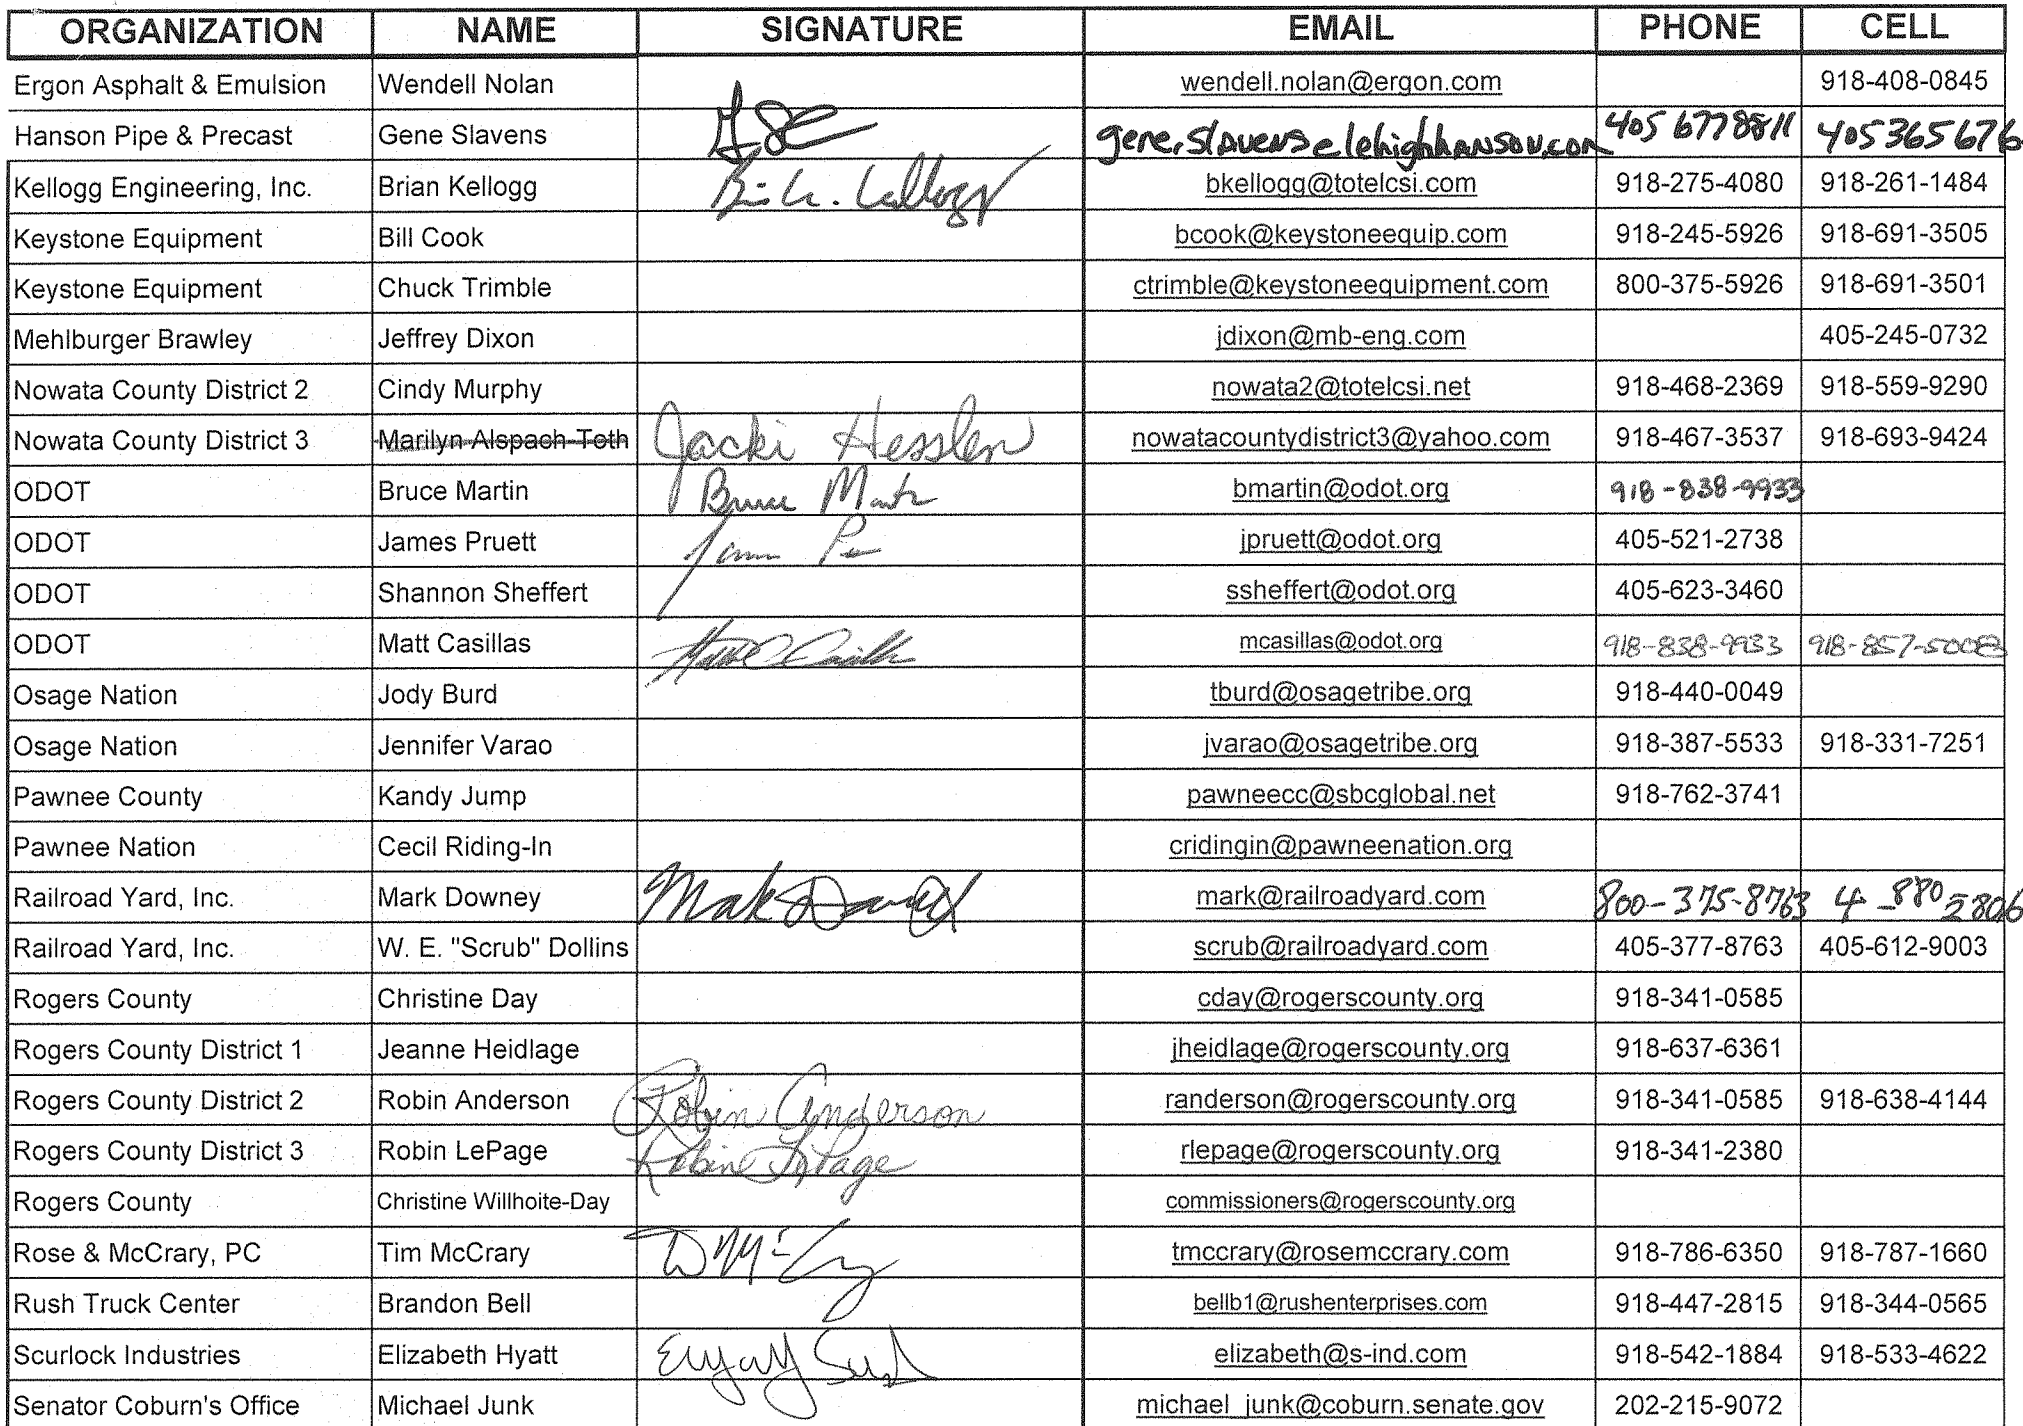 ORGANIZATION NAME SIGNATURE EMAIL PHONE CELL
Ergon Asphalt & Emulsion Wendell Nolan wendell.nolan@ergon.com 918-408-0845
Hanson Pipe & Precast Gene Slavens gene.slavens@lehighhanson.com 405 6778811 405 365676
Kellogg Engineering, Inc. Brian Kellogg bkellogg@totelcsi.com 918-275-4080 918-261-1484
Keystone Equipment Bill Cook bcook@keystoneequip.com 918-245-5926 918-691-3505
Keystone Equipment Chuck Trimble ctrimble@keystoneequipment.com 800-375-5926 918-691-3501
Mehlburger Brawley Jeffrey Dixon jdixon@mb-eng.com 405-245-0732
Nowata County District 2 Cindy Murphy nowata2@totelcsi.net 918-468-2369 918-559-9290
Nowata County District 3 Marilyn Alspach-Toth Jacki Hesslen nowatacountydistrict3@yahoo.com 918-467-3537 918-693-9424
ODOT Bruce Martin Bruce Martin bmartin@odot.org 918-838-9933
ODOT James Pruett jpruett@odot.org 405-521-2738
ODOT Shannon Sheffert ssheffert@odot.org 405-623-3460
ODOT Matt Casillas Matt Casillas mcasillas@odot.org 918-838-9933 918-857-5008
Osage Nation Jody Burd tburd@osagetribe.org 918-440-0049
Osage Nation Jennifer Varao jvarao@osagetribe.org 918-387-5533 918-331-7251
Pawnee County Kandy Jump pawneecc@sbcglobal.net 918-762-3741
Pawnee Nation Cecil Riding-In cridingin@pawneenation.org
Railroad Yard, Inc. Mark Downey Mark Downey mark@railroadyard.com 800-375-8763 4 -880 2806
Railroad Yard, Inc. W. E. "Scrub" Dollins scrub@railroadyard.com 405-377-8763 405-612-9003
Rogers County Christine Day cday@rogerscounty.org 918-341-0585
Rogers County District 1 Jeanne Heidlage jheidlage@rogerscounty.org 918-637-6361
Rogers County District 2 Robin Anderson Robin Anderson randerson@rogerscounty.org 918-341-0585 918-638-4144
Rogers County District 3 Robin LePage Robin LePage rlepage@rogerscounty.org 918-341-2380
Rogers County Christine Willhoite-Day commissioners@rogerscounty.org
Rose & McCrary, PC Tim McCrary tmccrary@rosemccrary.com 918-786-6350 918-787-1660
Rush Truck Center Brandon Bell bellb1@rushenterprises.com 918-447-2815 918-344-0565
Scurlock Industries Elizabeth Hyatt elizabeth@s-ind.com 918-542-1884 918-533-4622
Senator Coburn's Office Michael Junk michael_junk@coburn.senate.gov 202-215-9072